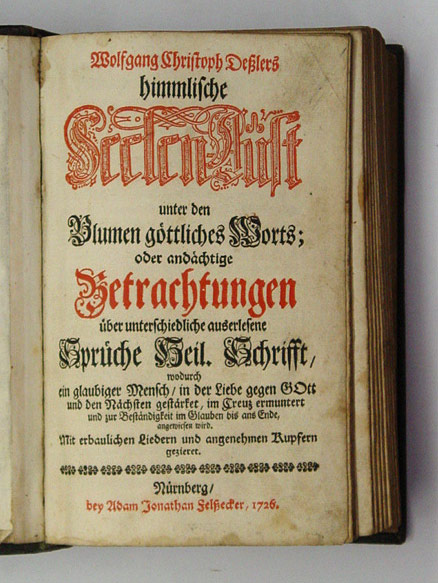 Wolfgang Christoph Deßlers
himmlische
Seelen Lust
unter den
Blumen göttliches Worts;
oder andächtige
Betrachtungen
über unterschiedliche auserlesene
Sprüche Heil. Schrifft/
wodurch
ein glaubiger Mensch/ in der Liebe gegen GOtt
und den Nächsten gestärket, im Creuz ermuntert
und zur Beständigkeit im Glauben bis ans Ende,
angewiesen wird.
Mit erbaulichen Liedern und angenehmen Kupfern
gezieret.
Nürnberg/
bey Adam Jonathan Felßecker, 1726.